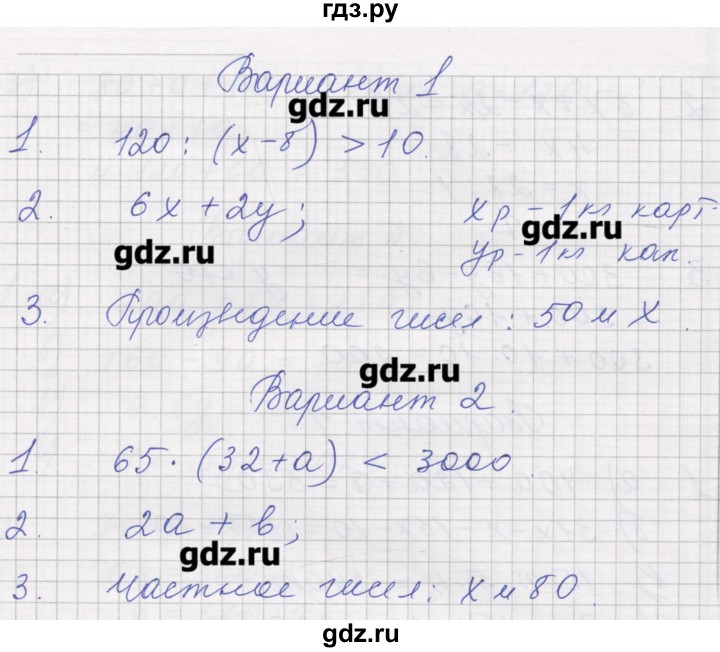 гдз.ру
Вариант 1
gdz.ru
1. 120 : (x-8) > 10.
2. 6x + 2y; xр - 1 кг карт.
gdz.ru
gdz.ru yр - 1 кг кап.
3. Произведение чисел : 50 и X.
gdz.ru
Вариант 2.
1. 65 · (32+a) < 3000
2. 2a + b;
gdz.ru
3. Частное чисел: x и 80.
gdz.ru